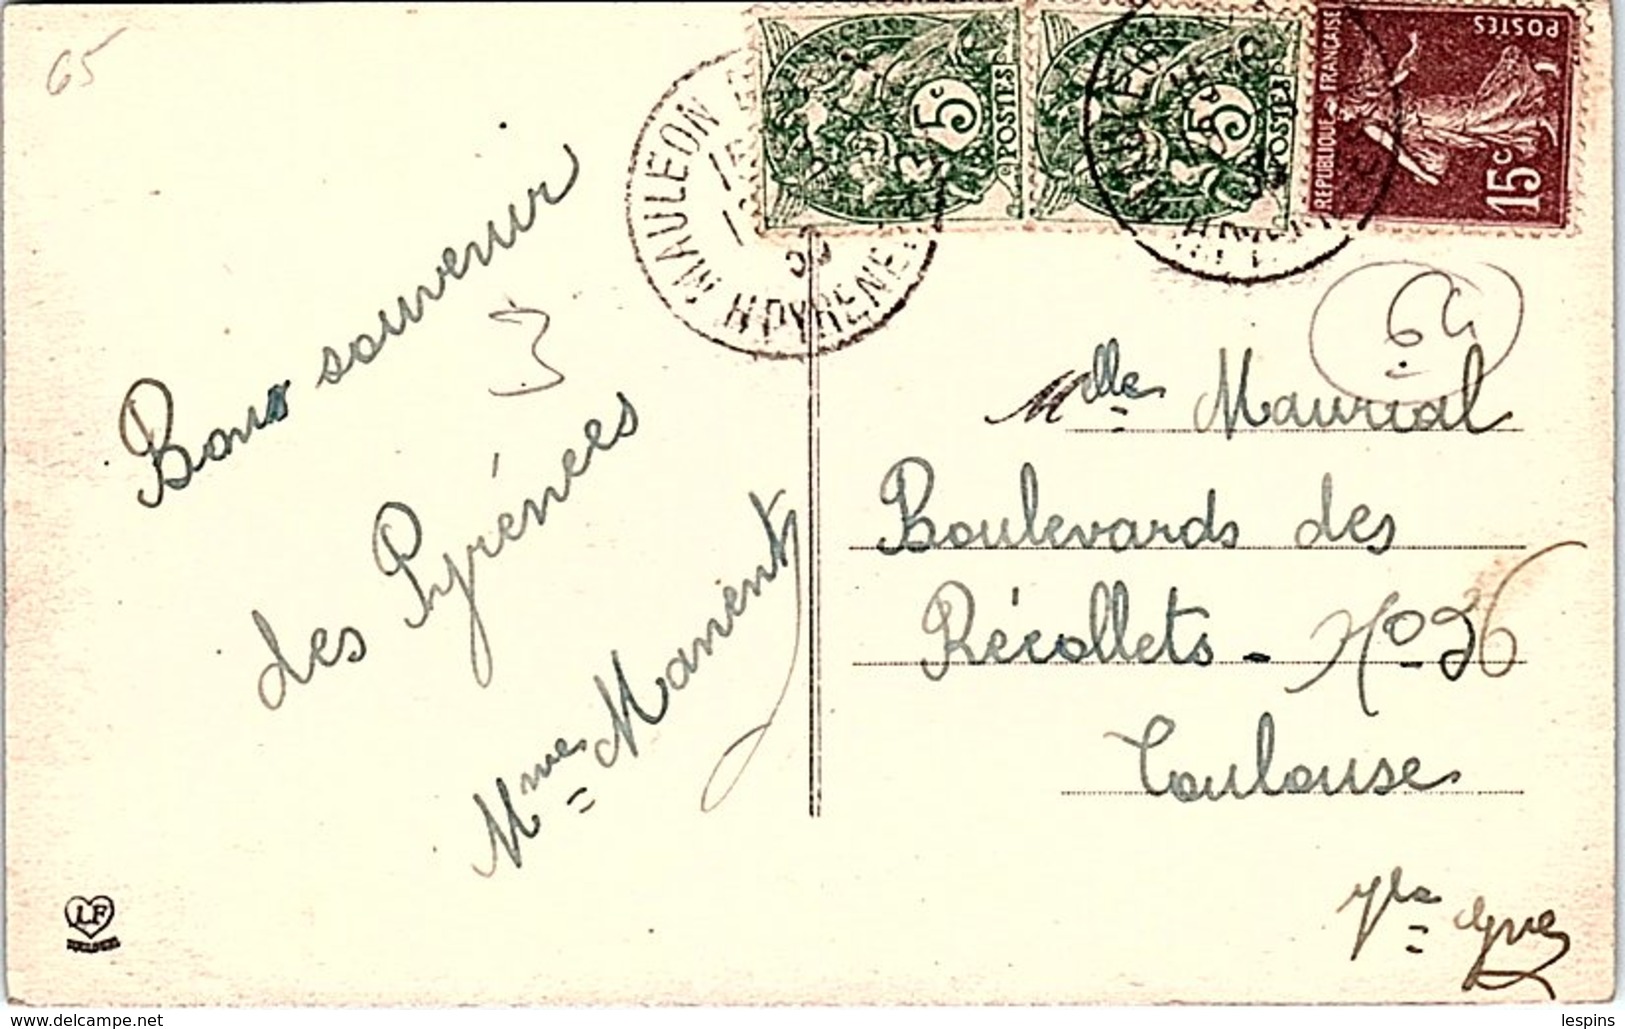 65
MAULEON
H. PYRENEES
5c
POSTES
5c
POSTES
REPUBLIQUE FRANÇAISE
POSTES
15c
Bons souvenir
3
des Pyrénées
Mme Manent
Mlle Maurial
Boulevards des
Récollets - No 36
Toulouse
Hte Gne
LF
lespins